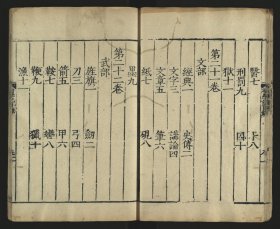 醫七 卜八
刑罰九 囚十
獄十一
第二十一卷
文部
經典一 史傳二
文字三 講論四
文章五 筆六
紙七 硯八
墨九
第二十二卷
武部
旌旗一 劒二
刀三 弓四
箭五 甲六
鞍七 轡八
鞭九 獵十
漁十一